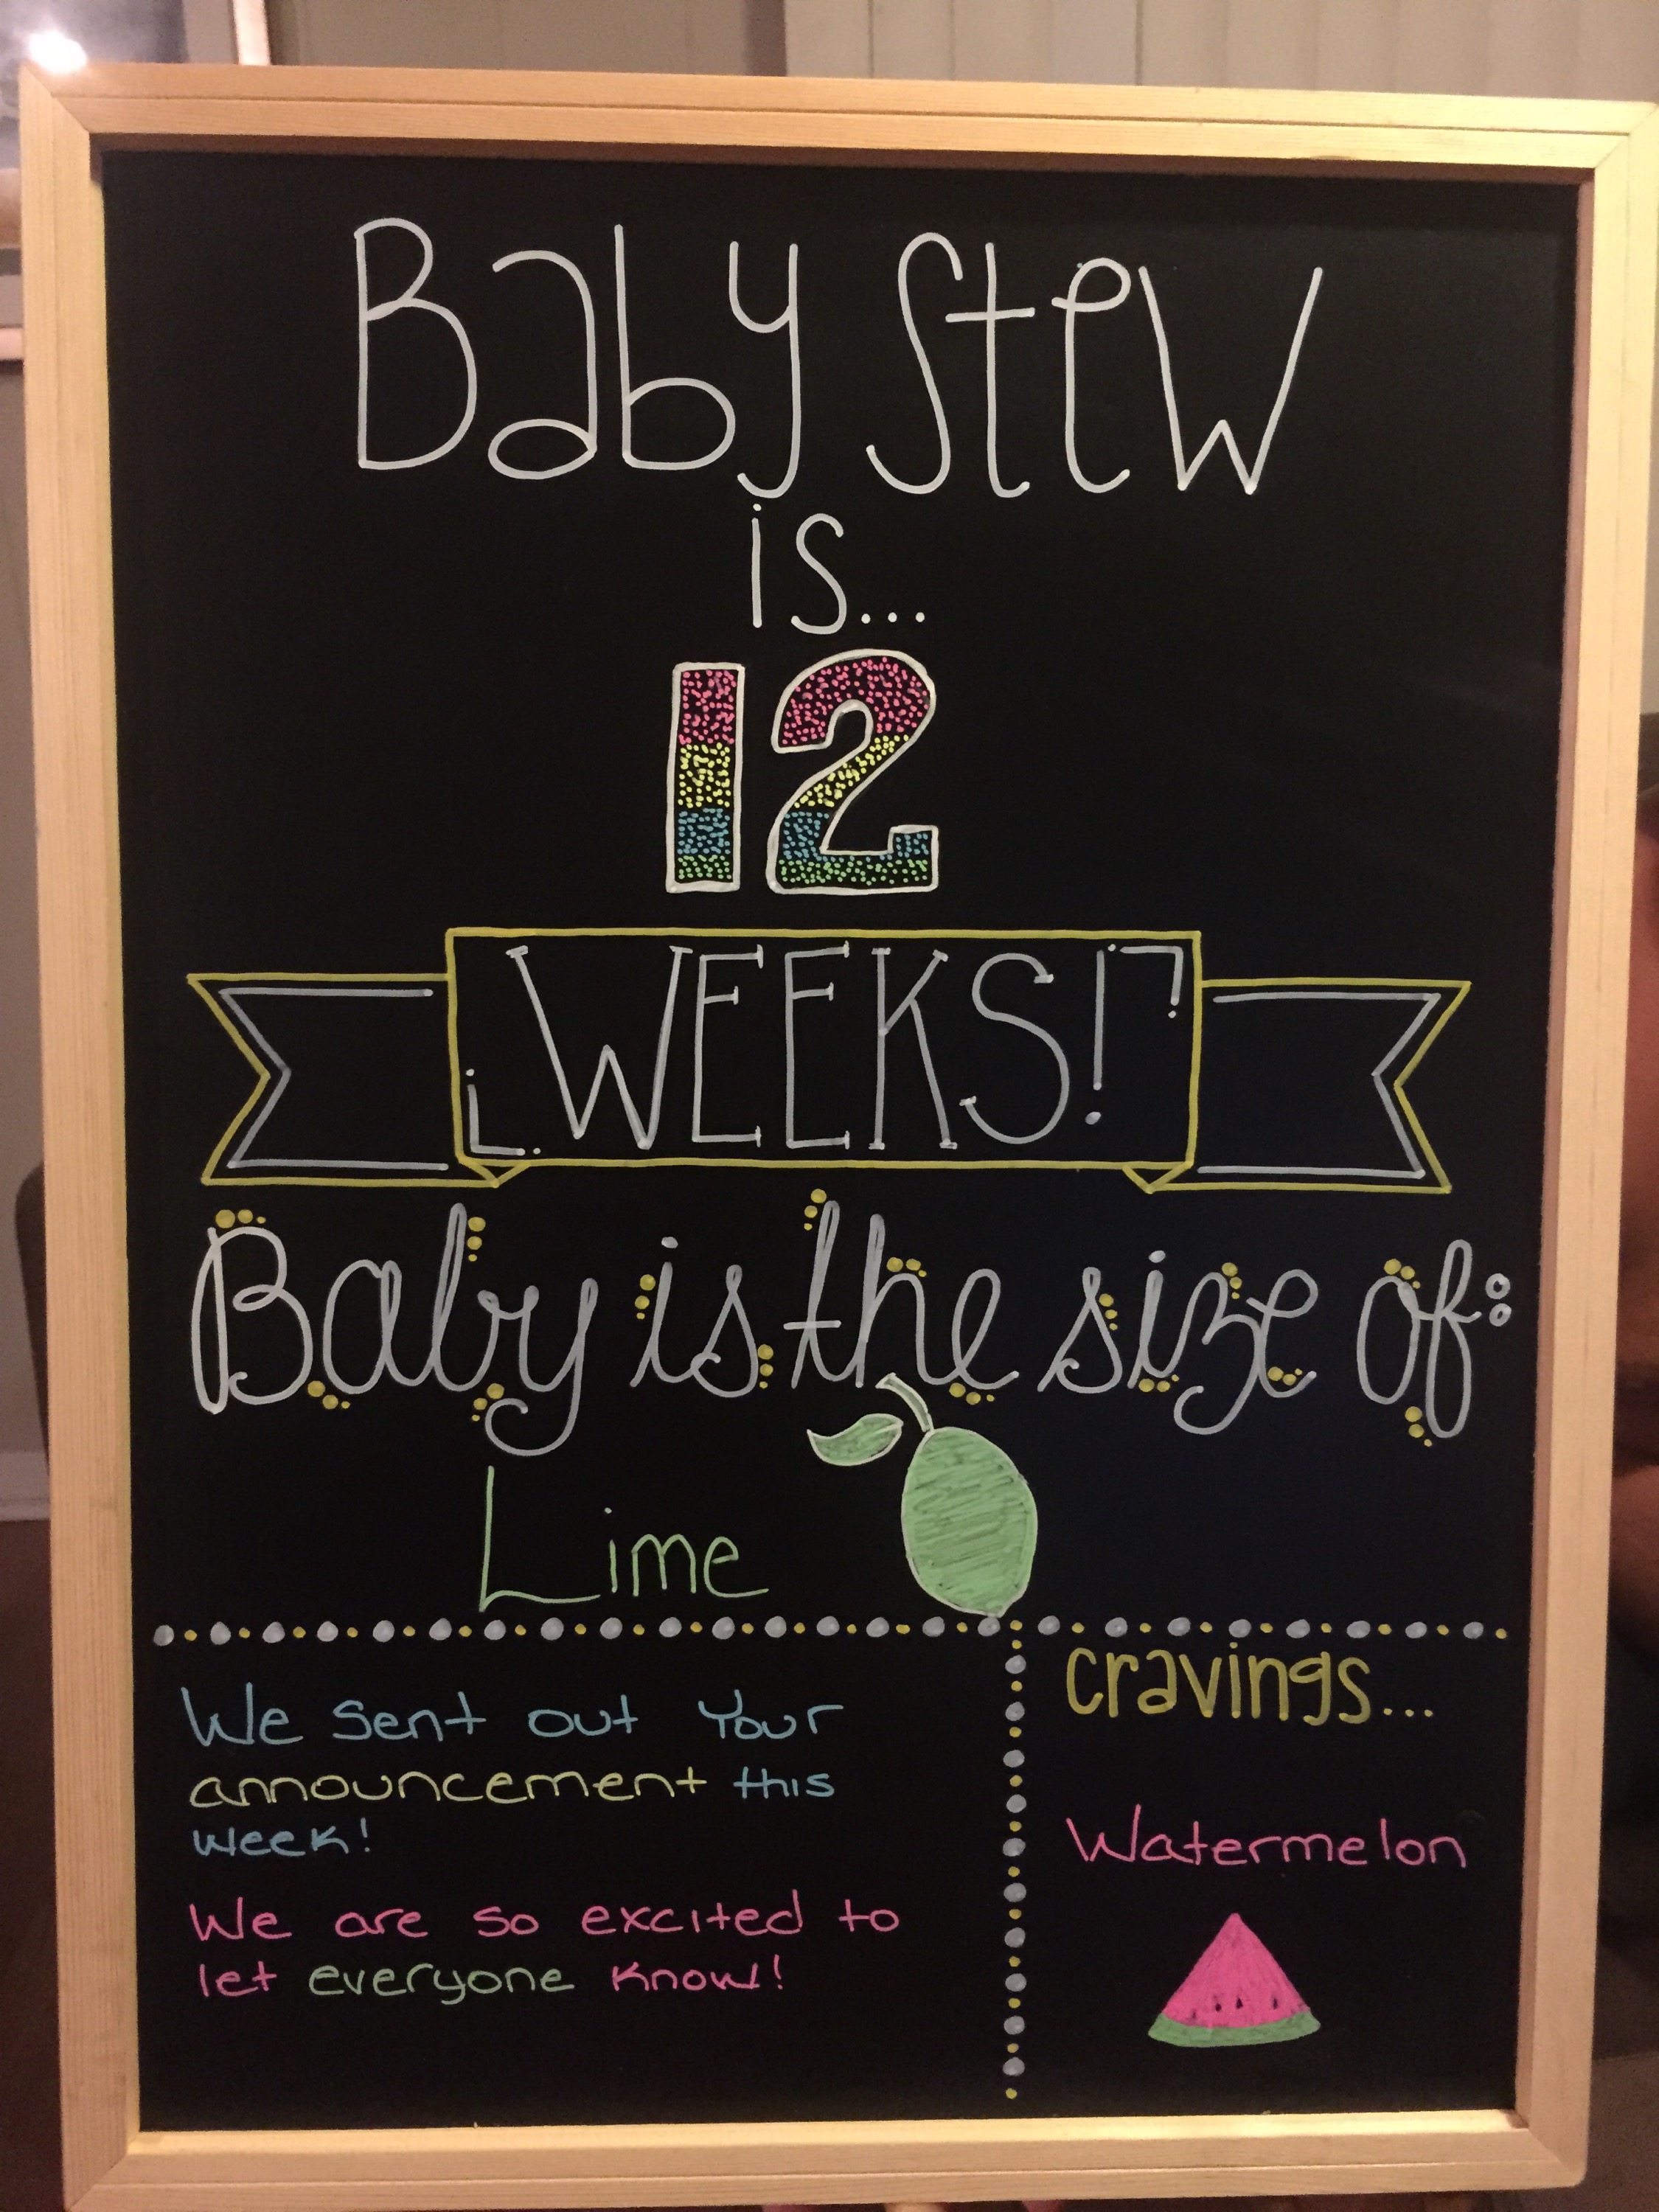 Baby Stew
is...
12
WEEKS!
Baby is the size of:
Lime
We sent out your
announcement this
week!
We are so excited to
let everyone know!
cravings...
Watermelon